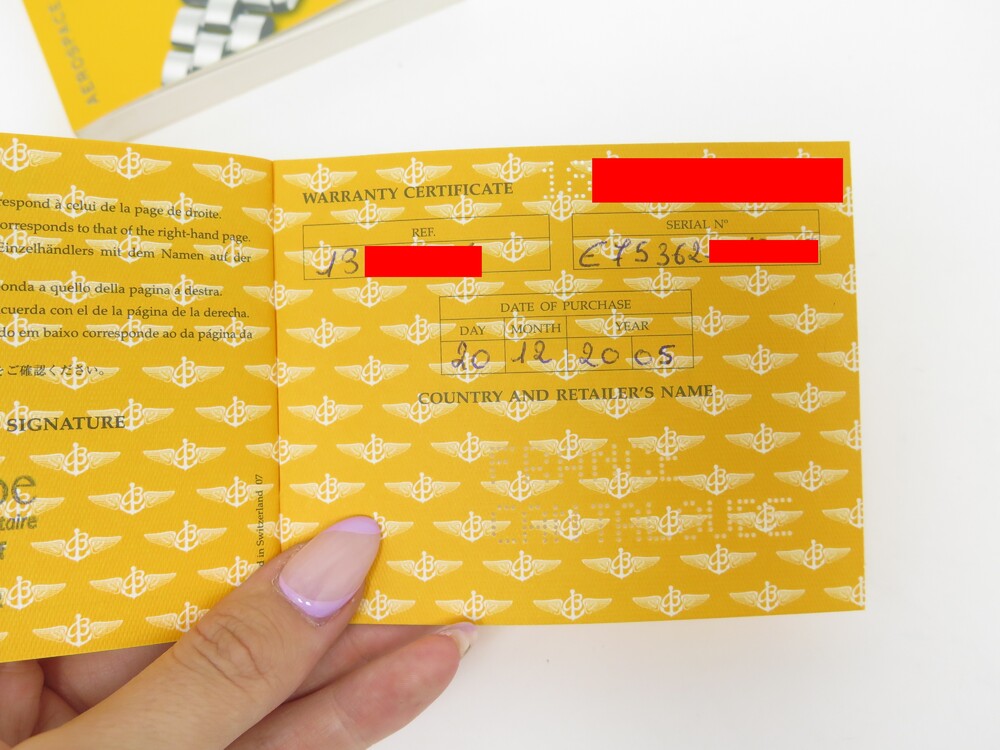 AEROSPACE
respond à celui de la page de droite.
corresponds to that of the right-hand page.
Einzelhändlers mit dem Namen auf der
onda a quello della pagina a destra.
cuerda con el de la página de la derecha.
do em baixo corresponde ao da página da
をご確認ください。
SIGNATURE
taire
d in Switzerland 07
WARRANTY CERTIFICATE
REF.
13
SERIAL Nº
E75362
DATE OF PURCHASE
DAY MONTH YEAR
20 12 20 05
COUNTRY AND RETAILER'S NAME
FRANCE